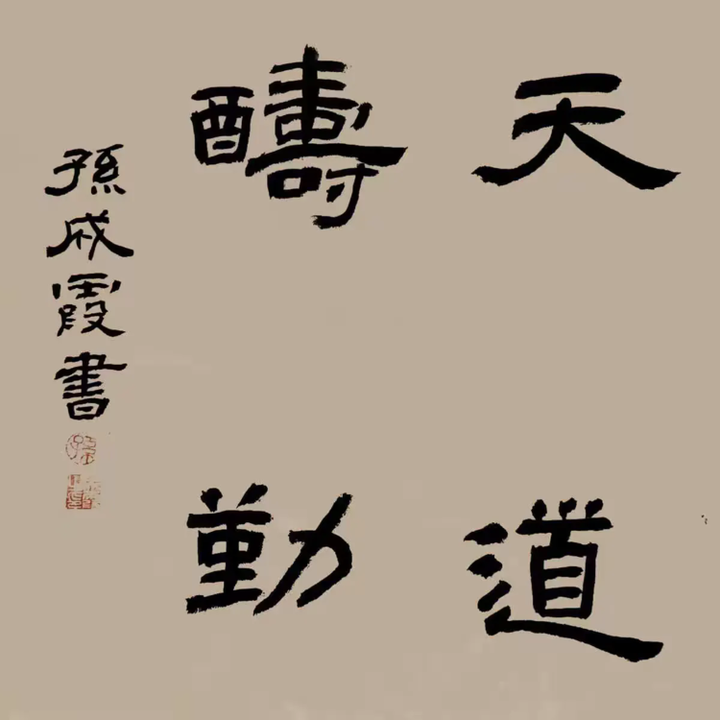 天道
醻勤
孫成霞書